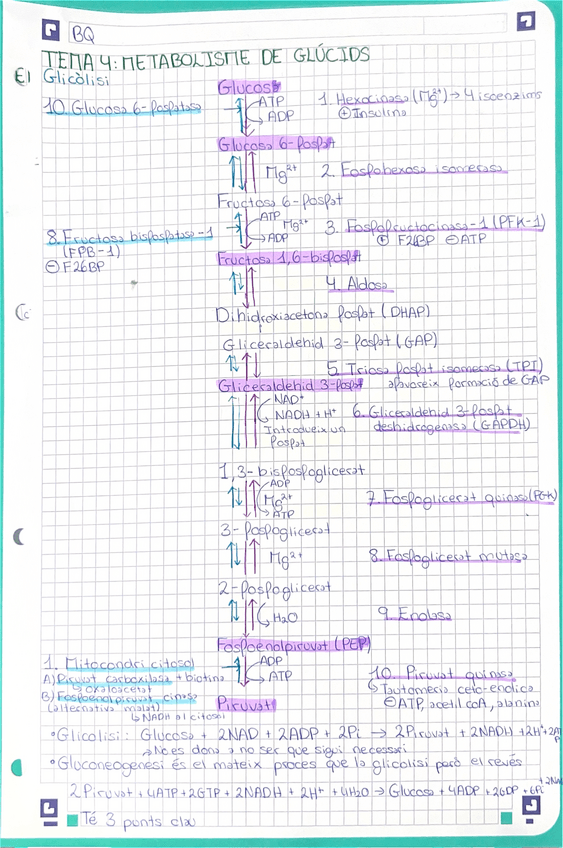 BQ
TEMA 4: METABOLISME DE GLÚCIDS
Glicòlisi
Glucosa
10. Glucosa 6-fosfatasa
ATP
ADP
1. Hexocinasa (Mg²⁺) → 4 isoenzims
⊕ Insulina
Glucosa 6-fosfat
Mg²⁺
2. Fosfohexosa isomerasa
Fructosa 6-fosfat
8. Fructosa bisfosfatasa-1
(FPB-1)
⊖ F26BP
ATP
Mg²⁺
ADP
3. Fosfofructocinasa-1 (PFK-1)
⊕ F26BP ⊖ATP
Fructosa 1,6-bisfosfat
4. Aldosa
Dihidroxiacetona fosfat (DHAP)
Gliceraldehid 3-fosfat (GAP)
5. Triosa fosfat isomerasa (TPI)
afavoreix formació de GAP
Gliceraldehid 3-fosfat
NAD⁺
NADH + H⁺
Introdueix un
fosfat
6. Gliceraldehid 3-fosfat
deshidrogenasa (GAPDH)
1,3-bisfosfoglicerat
ADP
Mg²⁺
ATP
7. Fosfoglicerat quinasa (PGK)
3-fosfoglicerat
Mg²⁺
8. Fosfoglicerat mutasa
2-fosfoglicerat
H₂O
9. Enolasa
Fosfoenolpiruvat (PEP)
1. Mitocondri citosol
A) Piruvat carboxilasa + biotina
↳ oxaloacetat
B) Fosfoenolpiruvat cinasa
(alternativa malat)
↳ NADH al citosol
ADP
ATP
10. Piruvat quinasa
↳ Tautomeria ceto-enolica
⊖ATP, acetil coA, alanina
Piruvat
• Glicolisi: Glucosa + 2NAD + 2ADP + 2Pi → 2Piruvat + 2NADH + 2H⁺ + 2ATP
→ No es dona a no ser que sigui necessari
• Gluconeogenesi és el mateix proces que la glicolisi però el revés
2Piruvat + 4ATP + 2GTP + 2NADH + 2H⁺ + 4H₂O → Glucosa + 4ADP + 2GDP + 6Pi
Té 3 punts clau